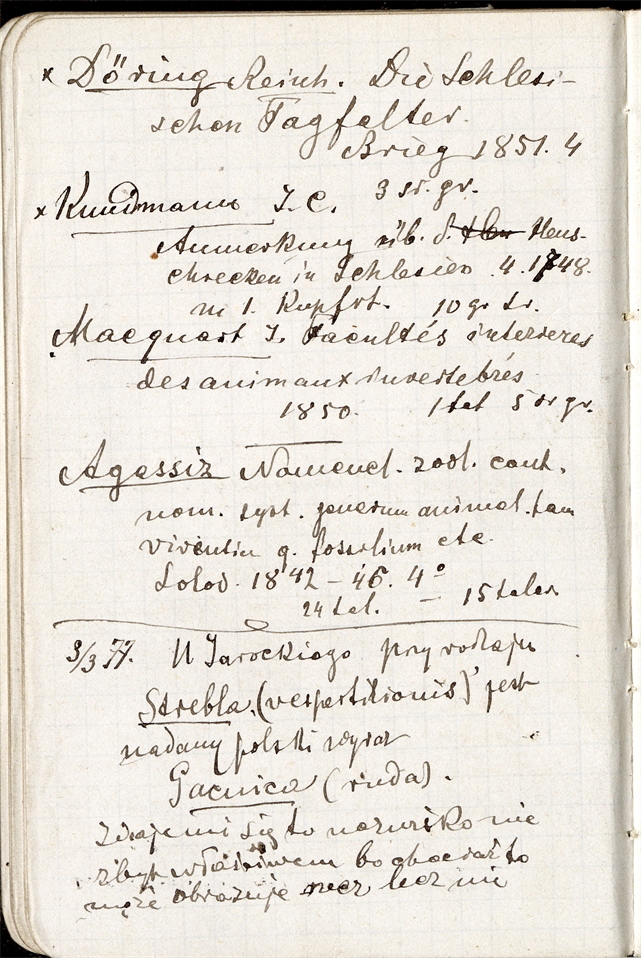 x Döring Reinh. Die Schlesi-
schen Tagfalter.
Brieg 1851. 4
3 sr. gr.
x Kundmann I. C.
Anmerkung üb. d. Heus-
chrecken in Schlesien 4. 1748.
m 1. Kupfrt. 10 gr sr.
Macquart I. Facultés interieres
des animaux invertebrés
1850. 1 tal 5 sr gr.
Agassiz Nomencl. zool. cont.
nom. syst. generum animal. tam
viventiu q. fossilium etc.
Solod. 1842 – 46. 4°
24 tal. – 15 taler
3/3 77. U Jarockiego przy rodzaju
Strebla (vespertilionis) jest
nadany polski wyraz
Gacnica (ruda).
Zdaje mi się to nazwisko nie
zbyt właściwem bo chociaż to
może obrazuje rzecz lecz nie